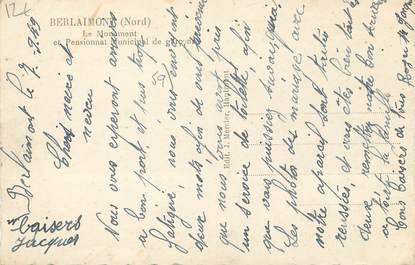 12
BERLAIMONT (Nord)
Le Monument
et Pensionnat Municipal de garçons
Edit. J. Mercier, Hautmont
Berlaimont le 7.
Chers nièce et
neveu
Nous vous espérons arrivés
à bon port et pas trop
fatigué, nous vous envoyons
deux mots afin de vous
que nous vous avons pris
un service de toilette, afin
que vous puissiez
les photos du mariage avec
notre appareil sont toutes
réussies, et vous êtes bien tous les
deux, remettez notre bon
à toute la famille
bons baisers de tous Roger
baisers
Jacques